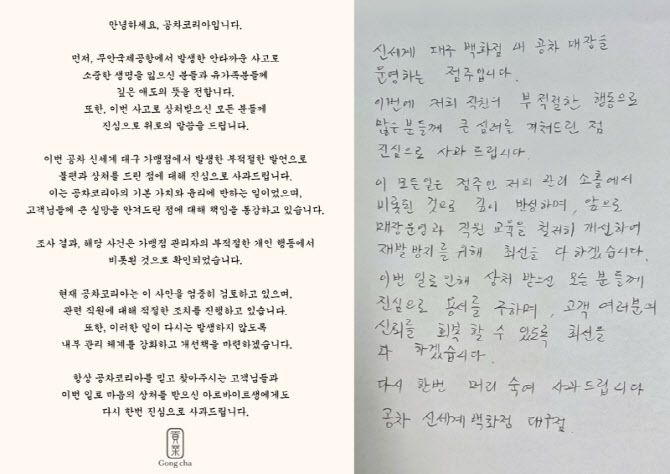 안녕하세요, 공차코리아입니다.
먼저, 무안국제공항에서 발생한 안타까운 사고로
소중한 생명을 잃으신 분들과 유가족분들께
깊은 애도의 뜻을 전합니다.
또한, 이번 사고로 상처받으신 모든 분들께
진심으로 위로의 말씀을 드립니다.
이번 공차 신세계 대구 가맹점에서 발생한 부적절한 발언으로
불편과 상처를 드린 점에 대해 진심으로 사과드립니다.
이는 공차코리아의 기본 가치와 윤리에 반하는 일이었으며,
고객님들께 큰 실망을 안겨드린 점에 대해 책임을 통감하고 있습니다.
조사 결과, 해당 사건은 가맹점 관리자의 부적절한 개인 행동에서
비롯된 것으로 확인되었습니다.
현재 공차코리아는 이 사안을 엄중히 검토하고 있으며,
관련 직원에 대해 적절한 조치를 진행하고 있습니다.
또한, 이러한 일이 다시는 발생하지 않도록
내부 관리 체계를 강화하고 개선책을 마련하겠습니다.
항상 공차코리아를 믿고 찾아주시는 고객님들과
이번 일로 마음의 상처를 받으신 아르바이트생에게도
다시 한번 진심으로 사과드립니다.
貢茶
Gong cha
신세계 대구 백화점 내 공차 매장을
운영하는 점주입니다.
이번에 저희 직원의 부적절한 행동으로
많은 분들께 큰 심려를 끼쳐드린 점
진심으로 사과 드립니다.
이 모든일은 점주인 저의 관리 소홀에서
비롯된 것으로 깊이 반성하며, 앞으로
매장운영과 직원 교육을 철저히 개선하여
재발방지를 위해 최선을 다 하겠습니다.
이번 일로인해 상처 받으신 모든 분들께
진심으로 용서를 구하며, 고객 여러분의
신뢰를 회복 할 수 있도록 최선을
다 하겠습니다.
다시 한번 머리 숙여 사과드립니다
공차 신세계백화점 대구점.